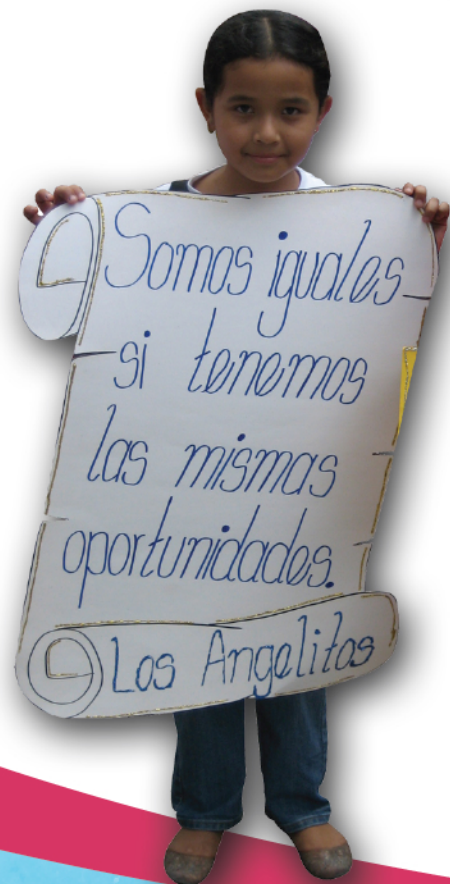 Somos iguales
si tenemos
las mismas
oportunidades.
Los Angelitos